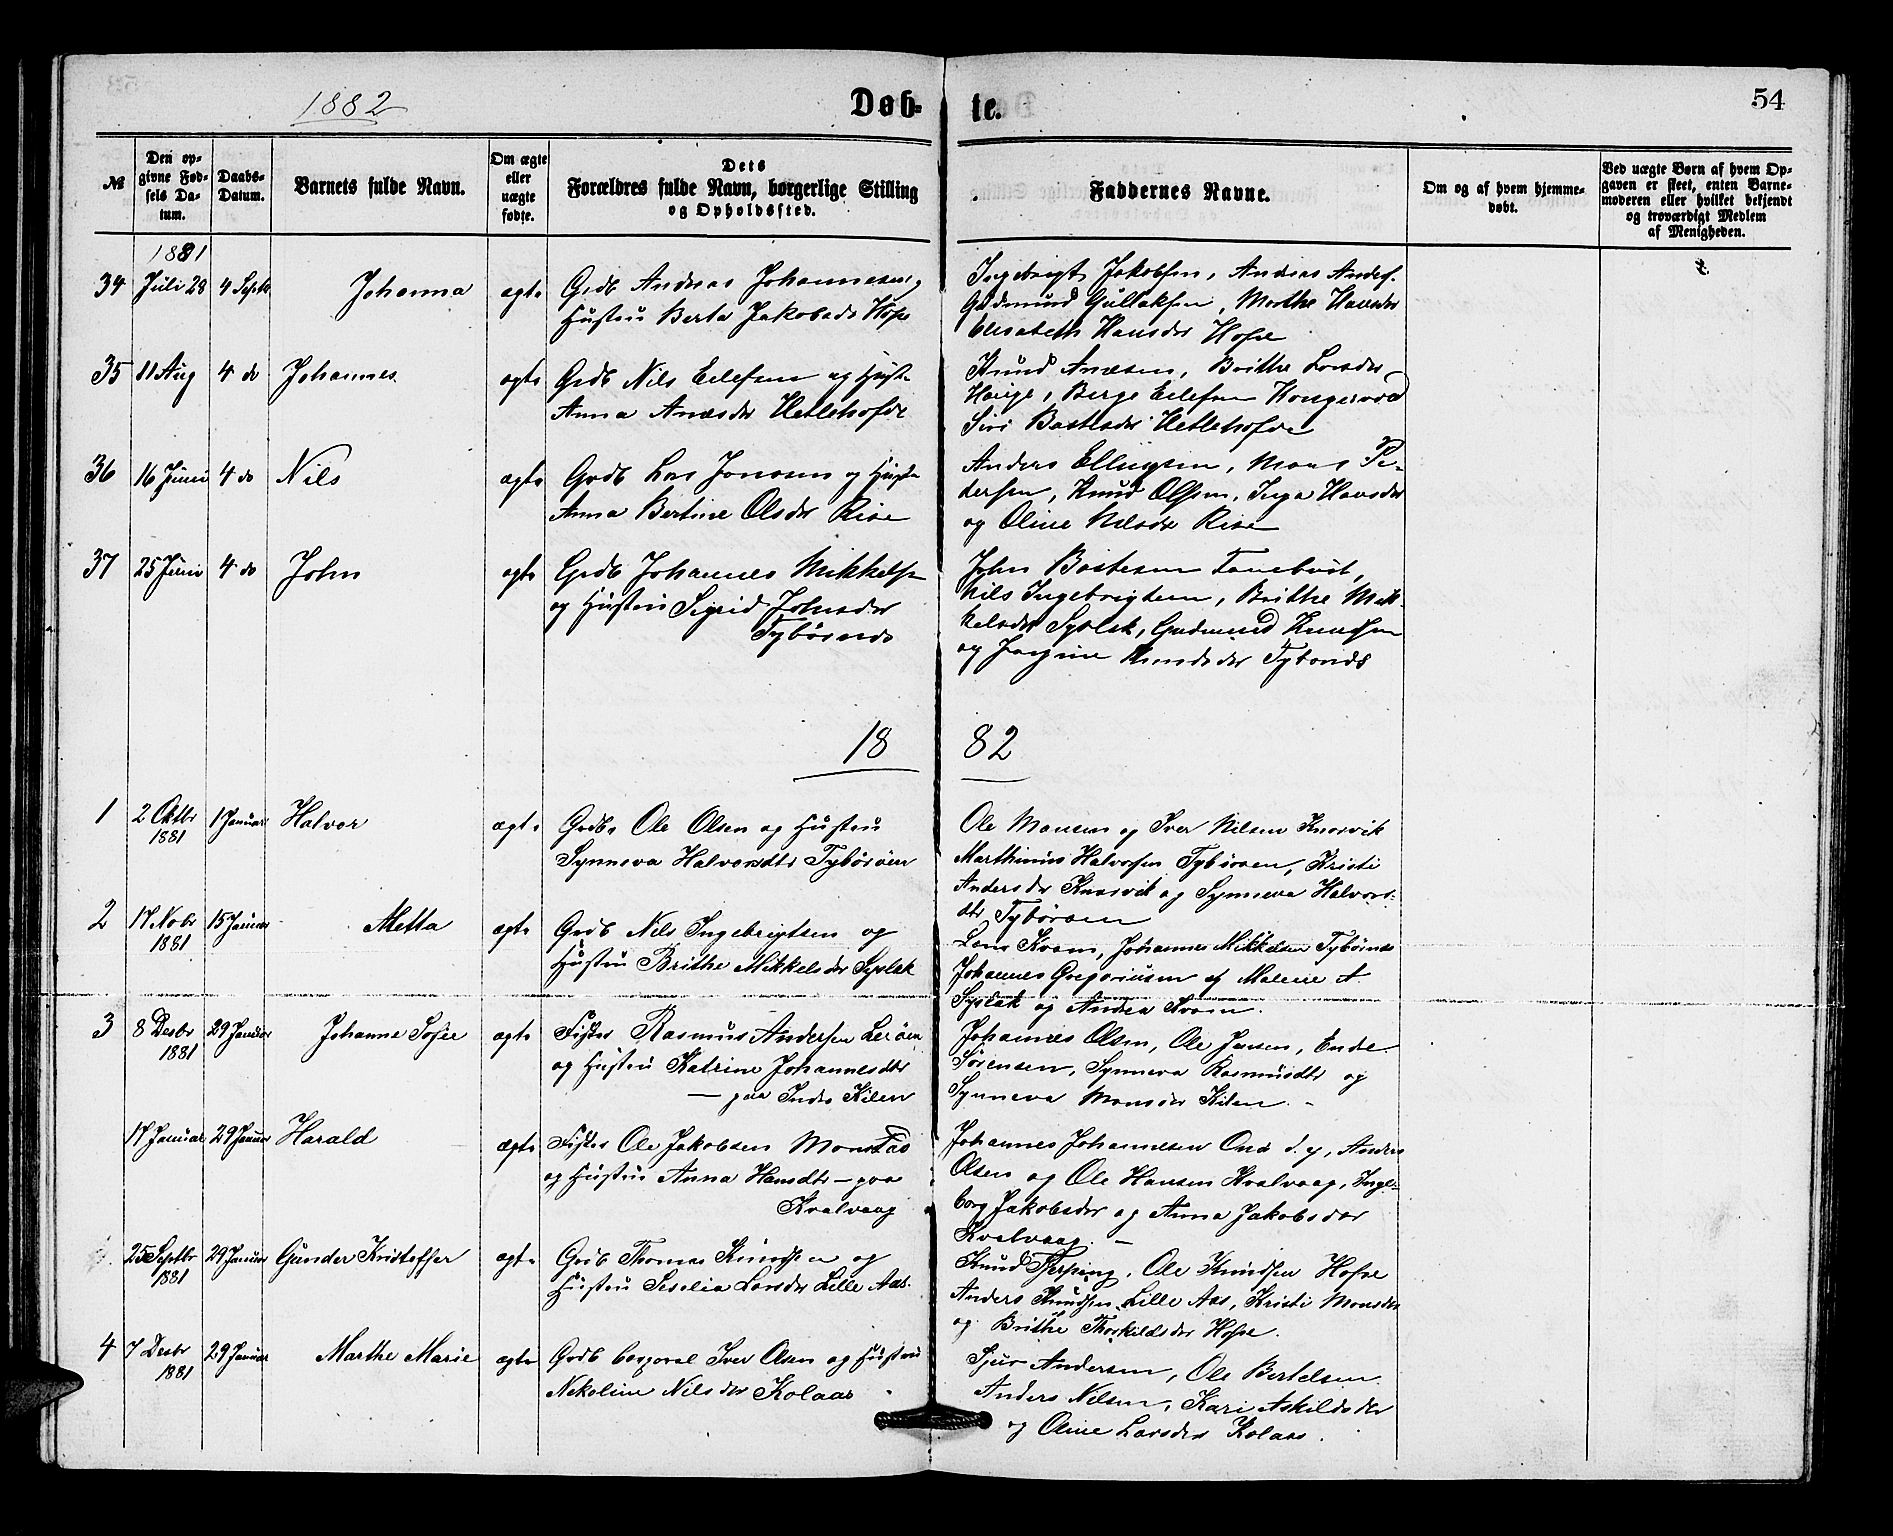 1882
Døb-
te.
54
№
Den op-
givne Fød-
sels Da-
tum.
Daabs-
Datum.
Barnets fulde Navn.
Om ægte
eller
uægte
fødte.
Dets
Forældres fulde Navn, borgerlige Stilling
og Opholdssted.
Faddernes Navne.
Om og af hvem hjemme-
døbt.
Ved uægte Børn af hvem Op-
gaven er skeet, enten Barne-
moderen eller hvilket bekjendt
og troværdigt Medlem
af Menigheden.
1881
34 Juli 28 4 Septr Johanna ægte Grdb Andreas Johannesen,
Hustru Berta Jakobsdr Hope
Ingebrigt Jakobsen, Andreas Anders.
Gudmund Gullaksen, Marthe Hansdr
Elisabeth Hansdr Hope
35 11 Aug 4 do Johannes ægte Grdb Nils Eilefsen og Hustr
Anna Andersdr Hetlehofde
Knud Andersen, Brithe Larsdr
Hauge, Berge Eilefsen
Siri Hetlehofde
36 16 Juni 4 do Nils ægte Grdb Lars Jonasen og Hustr
Anna Bertine Olsdr Rise
Anders Ellingsen, Mons Pe-
dersen, Knud Olsen, Inga Hansdr
og Oline Nilsdr Rise
37 25 Juni 4 do John ægte Grdb Johannes Mikkelsen
og Hustru Sigrid Johnsdr
Tybørnds
John Bastesen
Nils Ingebrigtsen, Brithe Mik-
kelsdr Syslak, Gudmund Knudsen
og Jorgine Knudsdr Tybønds
18 82
1 2 Oktbr 1 Januar Halvor ægte Grdb. Ole Olsen og Hustru
1881
Synneva Halvorsdtr Tybørøen
Ole Monsen og Iver Nilsen Knarvik
Marthinus Halvorsen Tybørøen, Kristi
Andersdr Knarvik og Synneva Halvors-
dtr Tybørøen
2 17 Nobr 15 Januar Metta ægte Grdb Nils Ingebrigtsen og
1881
Hustru Brithe Mikkelsdr Syslak
Lars Kvam, Johannes Mikkelsen Tybørnes
Johannes Gregoriusen og Malene A.
Syslak og Andrea Kvam.
3 8 Desbr 29 Januar Johanne Sofie ægte Fisker Rasmus Andersen Lerøen
1881
og Hustru Katrine Johannesdtr
— paa Indre Kilen
Johannes Olsen, Ole Jansen, Endre
Sørensen, Synneva Rasmusdtr og
Synneva Monsdr Kilen. -
17 Januar 29 Januar Harald ægte Fisker Ole Jakobsen Monstas
og Hustru Anna Hansdtr — paa
Kvalvaag
Johannes Johannesen d. y, Anders
Olsen og Ole Hansen Kvalvaag, Inge-
borg Jakobsdr og Anna Jakobsdr
Kvalvaag. —
25 Septbr 29 Januar Gunder Kristoffer ægte Grdb Thomas Knudsen og
1881
Hustru Seselia Larsdr Lille Aas.
Knud Tjersping, Ole Knudsen Hope
Anders Knudsen Lille Aas, Kristi Monsdr
og Brithe Thorkildsdr Hope.
4 7 Desbr 29 Januar Marthe Marie ægte Grdb Corporal Iver Olsen og Hustru
1881
Nekoline Nilsdr Kolaas
Sjur Andersen, Ole Bertelsen
Anders Nilsen, Kari Askildsdr
og Oline Larsdr Kolaas.